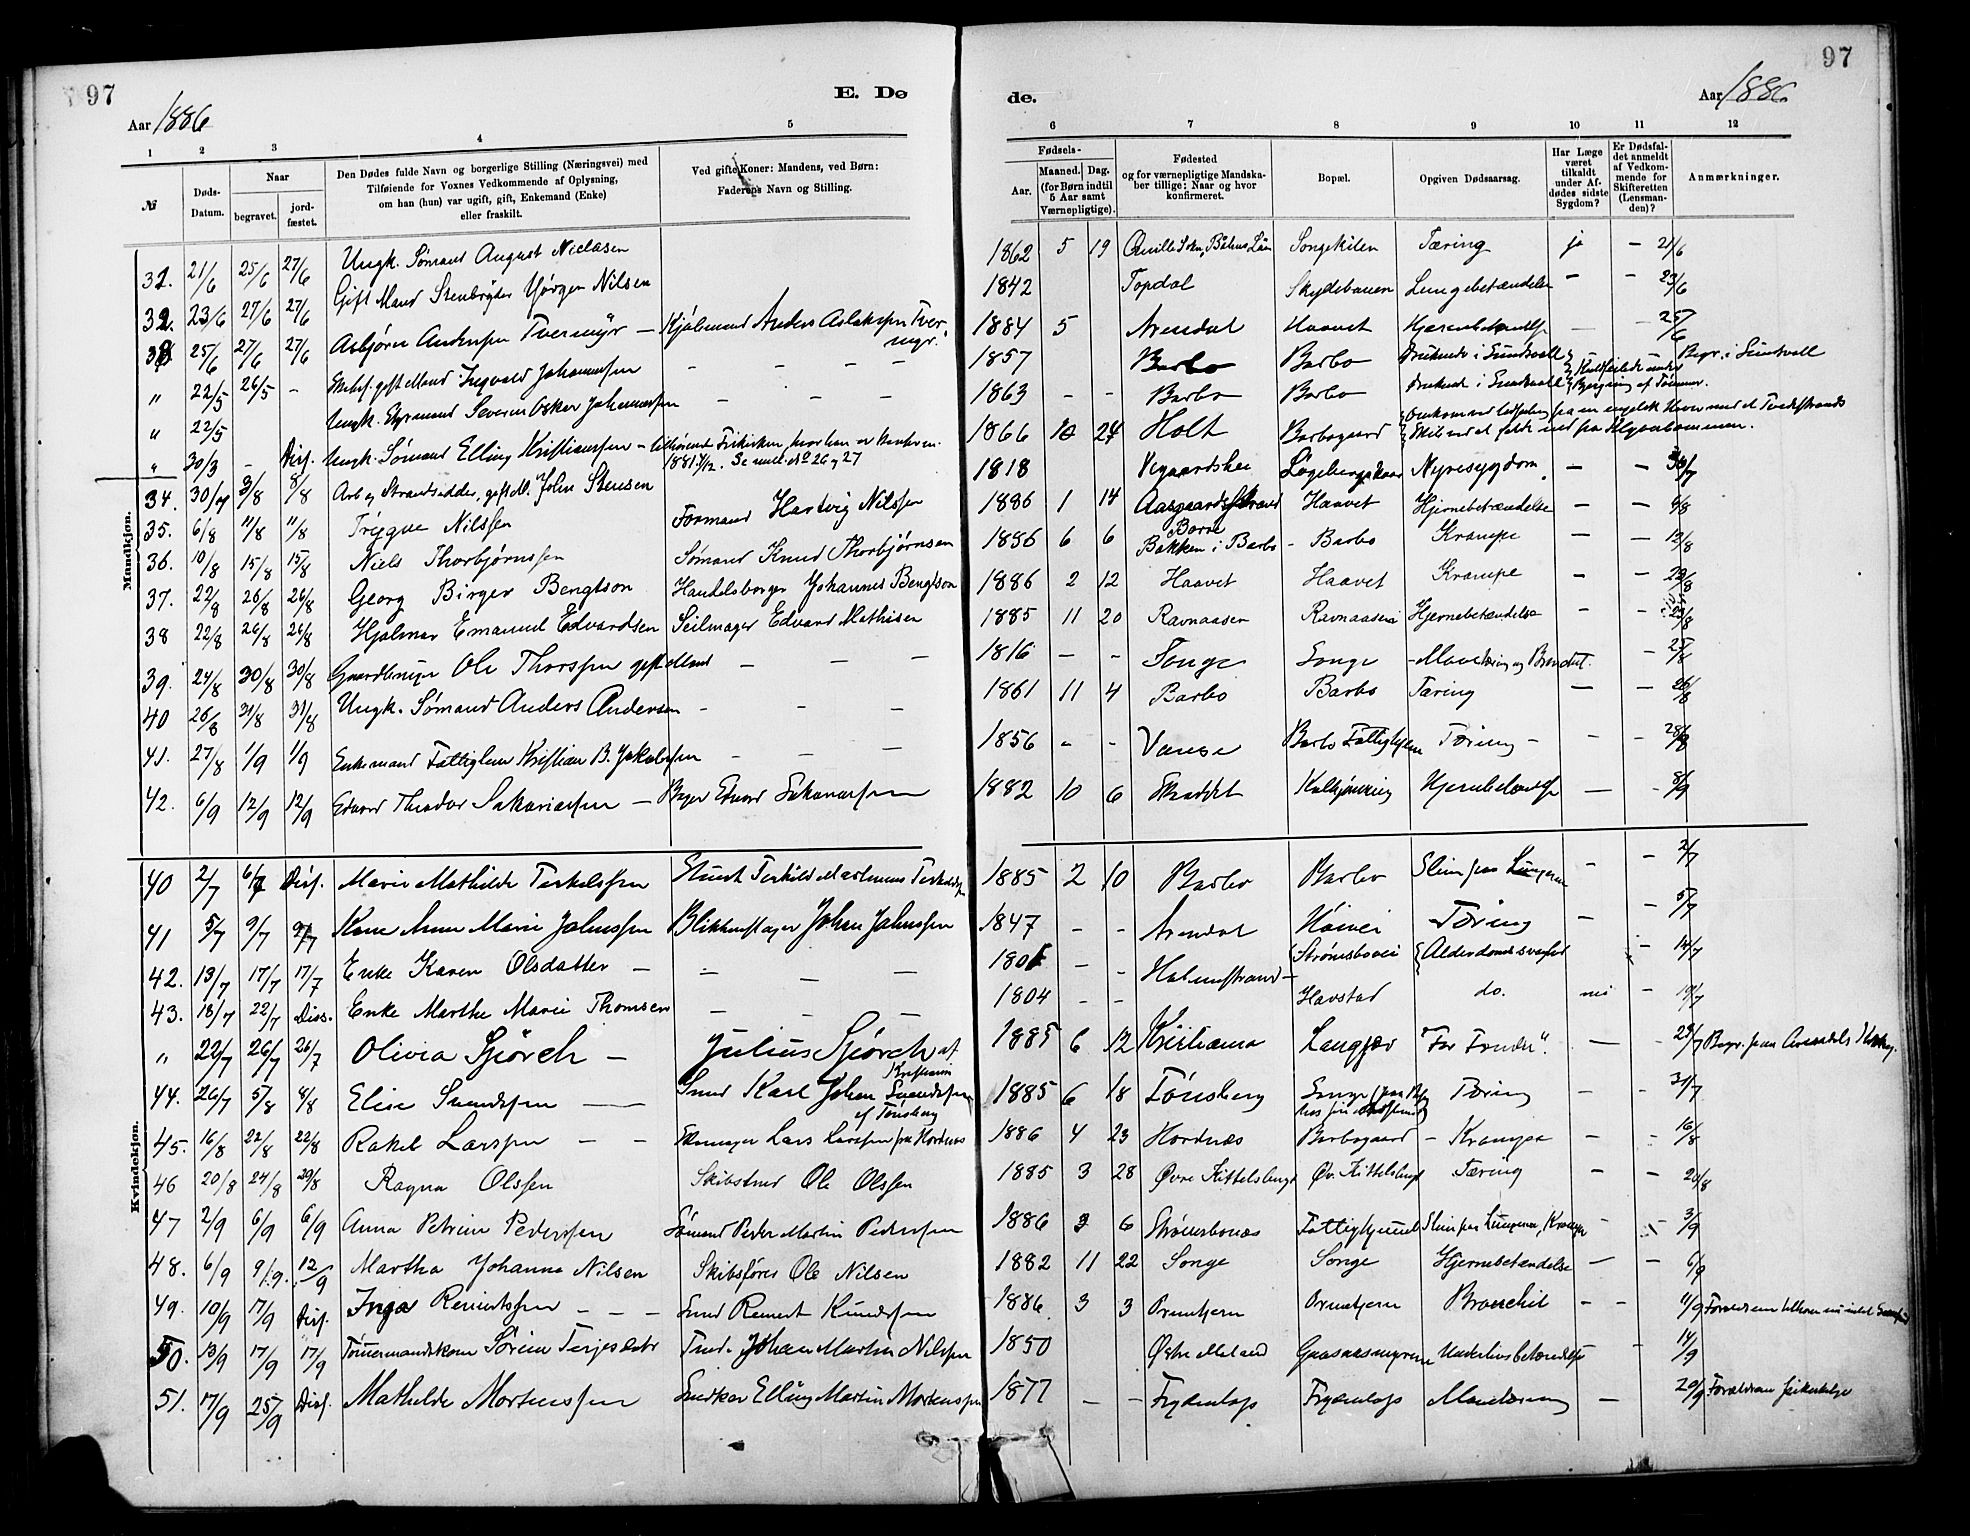 97
E. Dø
de.
97
Aar 1886
Aar 1886
1 2 3 4 5
6 7 8 9 10 11 12
№
Døds-Datum.
Naar
begravet.
jord-fæstet.
Den Dødes fulde Navn og borgerlige Stilling (Næringsvei) med
Tilføiende for Voxnes Vedkommende af Oplysning,
om han (hun) var ugift, gift, Enkemand (Enke)
eller fraskilt.
Ved gifte Koner: Mandens, ved Børn:
Faderens Navn og Stilling.
Fødsels-
Aar.
Maaned. Dag.
(for Børn indtil
5 Aar samt
Værnepligtige).
Fødested
og for værnepligtige Mandska-
ber tillige: Naar og hvor
konfirmeret.
Bopæl.
Opgiven Dødsaarsag.
Har Læge
været
tilkaldt
under Af-
dødes sidste
Sygdom?
Er Dødsfal-
det anmeldt
af Vedkom-
mende for
Skifteretten
(Lensman-
den)?
Anmærkninger.
Mandkjøn.
31. 21/6 25/6 27/6 Ungk. Sømand August Niclasen 1862 5 19 Songekilen Tæring ja – 21/6
32. 23/6 27/6 27/6 Gift Mand Stenbryder Jørgen Nilsen 1842 Topdal Skydebanen Lungebetændelse – – 23/6
33 25/6 27/6 27/6 Asbjørn Andersen Tvermyr – Kjølmand Anders Aslaksen Tvermyr. 1884 5 Arendal Haavet Hjernebetændelse – – 25/6
" 22/5 26/5 – gift Mand Ingvald Johannessen – – – 1857 Barbo Barbo Druknede i Sundsvall Begr. i Sundsvall
" 22/5 Ungk. Styrmand Severin Oskar Johannessen – – – 1863 – – Barbo Barbo druknet i Sundsvall
" 30/3 – Disp. Ungk. Sømand Elling Kristianssen – 1866 10 24 Holt Barbogaard
34. 30/7 3/8 8/8 Arb. og Strandsidder, gift M. John Stensen 1818 Vegaardshei Nyresygdom. – – 30/7
35. 6/8 11/8 11/8 Trygve Nilssen Formand Hartvig Nilssen 1886 1 14 Aasgaardstrand Borre Haavet Hjernebetændelse – – 6/8
36. 10/8 15/8 15/8 Niels Thorbjørnssen Sømand Knud Thorbjørnsen 1886 6 6 Bakken i Barbo – Barbo Krampe – – 13/8
37. 22/8 26/8 26/8 Georg Birger Bengtson Handelsborger Johannes Bengtson 1886 2 12 Haavet Haavet Krampe – – 23/8
38 22/8 26/8 26/8 Hjalmar Emanuel Edvardsen Seilmager Edvard Mathisen 1885 11 20 Ravnaasen Ravnaasen Hjernebetændelse – – 23/8
39. 24/8 30/8 30/8 Gaardbruger Ole Thorssen gift Mand – – – 1816 – – Songe Songe – – 25/8
40 26/8 31/8 31/8 Ungk. Sømand Anders Andersen – – – 1861 11 4 Barbo Barbo Tæring – – 26/8
41. 27/8 1/9 1/9 Enkemand Fattiglem Kristian B. Jakobssen – – – 1856 – – Vanse Barbo Fattighjem Tæring – – 28/8
42. 6/9 12/9 12/9 Edvard Theodor Sakariassen – Edvard Sakariassen 1882 10 6 Hjernebetændelse – – 8/9
Kvindekjøn.
40 2/7 6/7 Disp. Marie Mathilde Terkelssen 1885 2 10 Barbo Barbo Slim paa Lungerne – – 2/7
41 5/7 9/7 9/7 Kone Anne Marie Johnssen Blikkenslager Johan Johnssen 1847 – – Arendal Høivei Tæring – 5/7
42. 13/7 17/7 17/7 Enke Karen Olsdatter – – – – Holmestrand – Strømsbovei Alderdomssvaghed – 14/7
43. 18/7 22/7 Diss. Enke Marthe Marie Thomsen – – – 1804 – – Havstad do. nei – 19/7
" 22/7 26/7 26/7 Olivia Sjörch – Julius Sjörch af Kristiania 1885 6 12 Kristiania Langsæ – – 23/7 Begr. paa Arendals Kirkeg.
44. 26/7 5/8 8/8 Elise Svendssen – Smed Karl Johan Svendssen af Tønsberg 1885 6 18 Tønsberg Songe Tæring – – 31/7
45. 16/8 22/8 22/8 Rakel Larssen – – Lars Larssen fra Hordnæs 1886 4 23 Hordnæs Barbogaard – Krampe – – 16/8
46 20/8 24/8 29/8 Ragna Olssen Skibstmd Ole Olssen 1885 3 28 Øvre Kittelsbugt Øv. Kittelsbugt Tæring – – 20/8
47 2/9 6/9 6/9 Anna Petrine Pederssen Sømand Peder Martin Pederssen 1886 3 6 Strømsbonæs Fattighjemmet Slim paa Lungerne, Krampe – – 3/9
48. 6/9 9/9. 12/9 Martha Johanne Nilsen Skibsfører Ole Nilsen 1882 11 22 Songe Songe Hjernebetændelse – – 6/9
49. 10/9 17/9 Disp. Inga Reinertssen – – – Smed Reinert Knudssen 1886 3 3 Ormetjern Ormetjern Bronchit – – 11/9
50. 13/9 17/9 17/9 Tømmermandskone Sørine Terjesdatr Tmd. Johan Martin Nilssen 1850 Østre Moland Gaasaasmyrene Underlivsbetændelse – 14/9
51. 17/9 25/9 Disp. Mathilde Mortenssen Snedker Elling Martin Mortenssen 1877 – – Frydenlop Frydenlop – 20/9